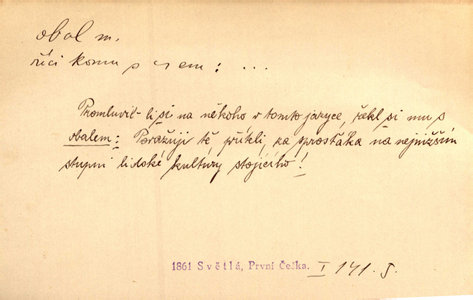 obal m.
říci komu s -em: ...
Promluvil-li se na někoho v tomto jazyce, řekl si mu s
obalem: Považuji tě, příteli, za sprosťáka na nejnižším
stupni lidské kultury stojícího!
1861 Světlá, První Češka. I 141. S.